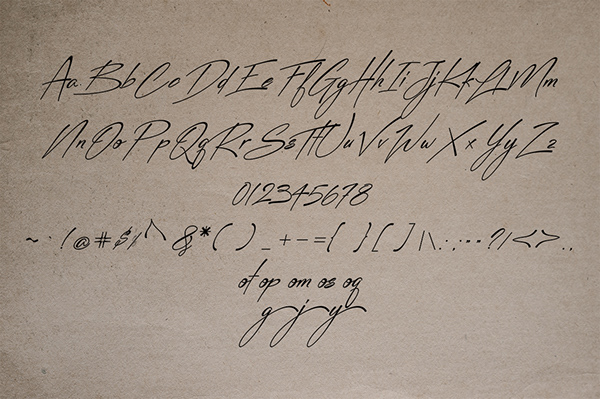 Aa Bb Cc Dd Ee Ff Gg Hh Ii Jj Kk Ll Mm
Nn Oo Pp Qq Rr Ss Tt Uu Vv Ww Xx Yy Zz
012345678
~ · ! @ # $ % ^ & * ( ) _ + - = { } [ ] | \ : ; " ' ? / < > , .
ot op om os oq
g j y